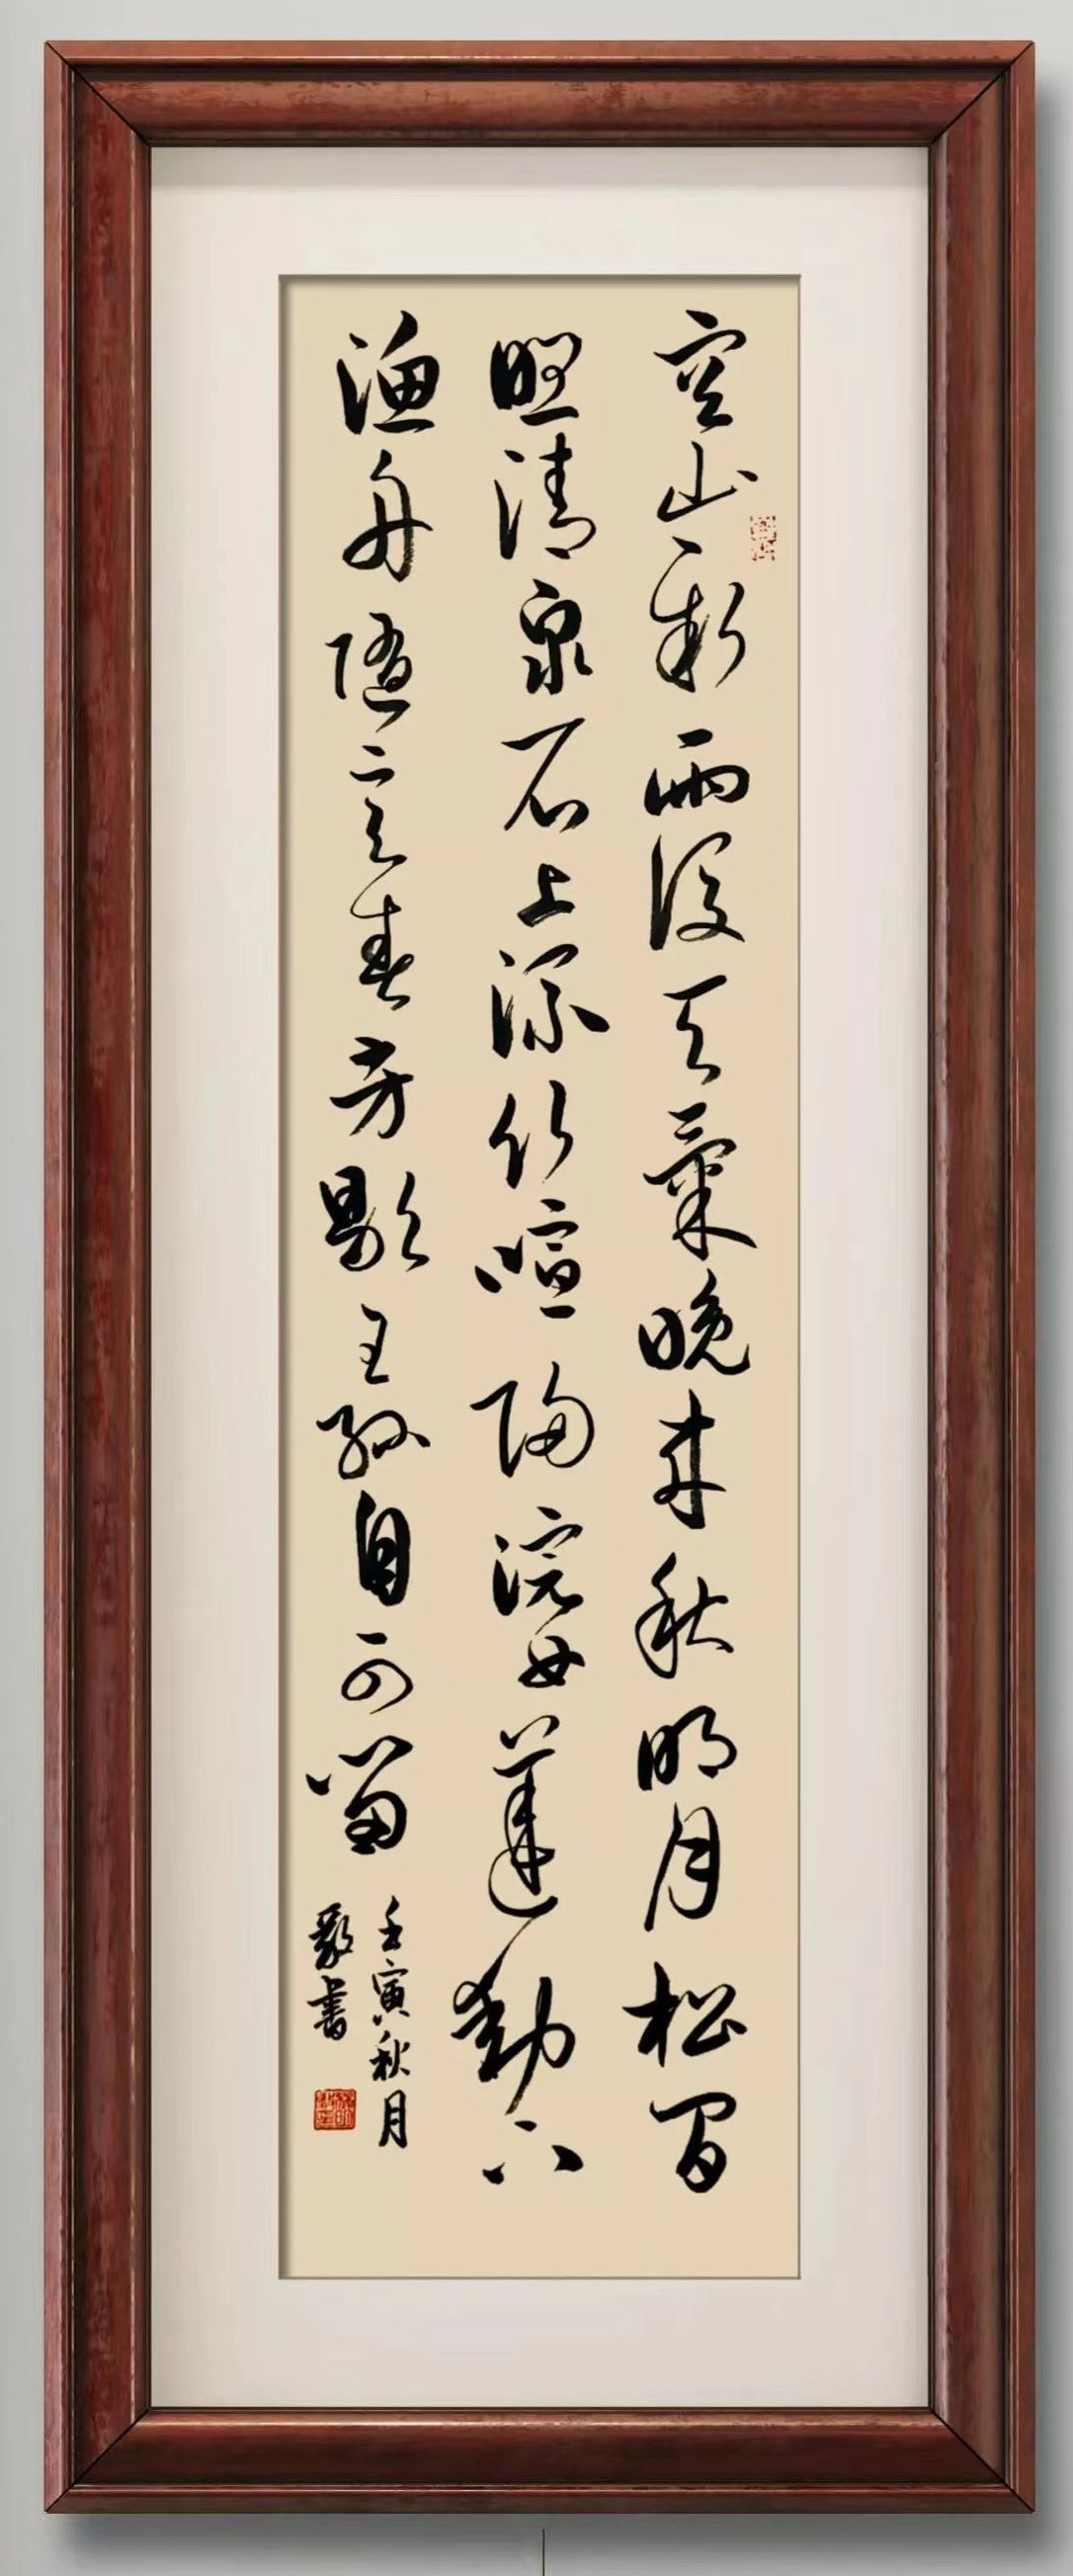 空山新雨後天氣晚來秋明月松間
照清泉石上流竹喧歸浣女蓮動下
漁舟隨意春芳歇王孫自可留
壬寅秋月
書